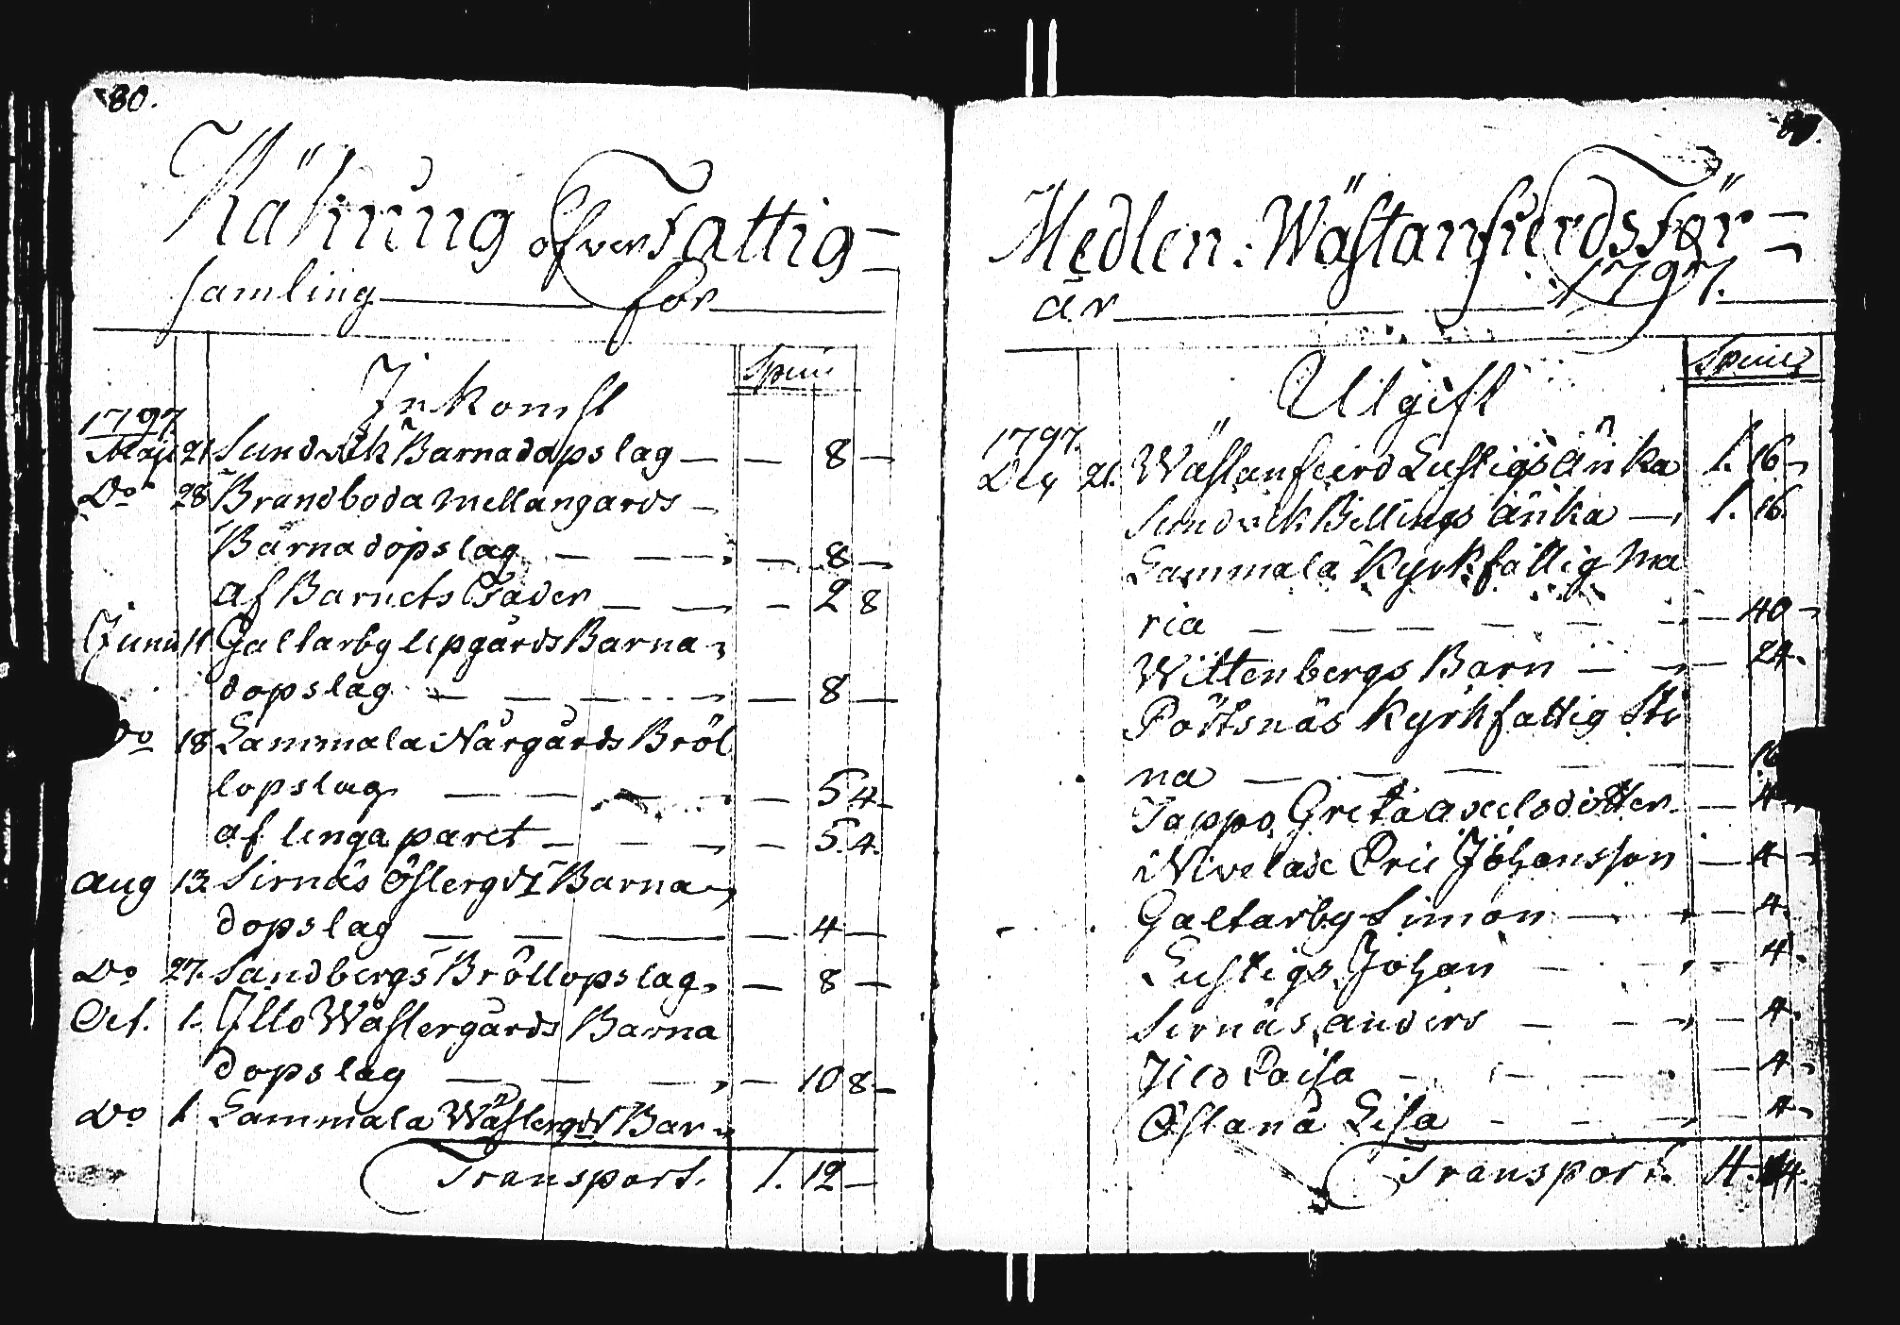 80.
Räkning öfver Fattig=
samling för
Inkomst Spcie
1797.
Maij 21 Sundvik Barnadopslag — — 8 —
Do 28 Brandboda mellangårds —
Barnadopslag — — — 8 —
af Barnets Fader — — - 2 8
Junii 11 Galtarby uppgårds Barna-
dopslag — — — — 8 —
Do 18 Lammala Norgårds Bröl
lopslag — — — — 5 4.
af unga paret — — — 5. 4.
Aug 13. Sirnäs Östergds Barna-
dopslag — — — — 4 —
Do 27. Sandbergs Bröllopslag, — 8 —
Oct. 1. Illo Wästergårds Barna
dopslag — — — — 10 8 —
Do 1 Lammala Wästergds Bar-
Transport. 1. 12 —
Medlen: Wästanfierds För=
år 1797.
Utgift Specie
1797.
21. Wästanfierd Lustigs änka 1. 16 -
Sundvik Billings änka — 1. 16.
Lammala Kyrkfattig Ma
ria — — — — — — 40 -
Wittenbergs Barn — — — 24.
Pörtsnäs Kyrkfattig Sti
na — — — — — 16
Jappo Greta Axelsdotter — 4 -
Nivelax Eric Johansson — 4 -
Galtarby Simon — — — 4.
Lustigs Johan — — — 4.
Sirnäs Anders — — — 4.
Kaisa - - - — 4 -
Östanå Lisa - - — 4 -
Transport. 4.